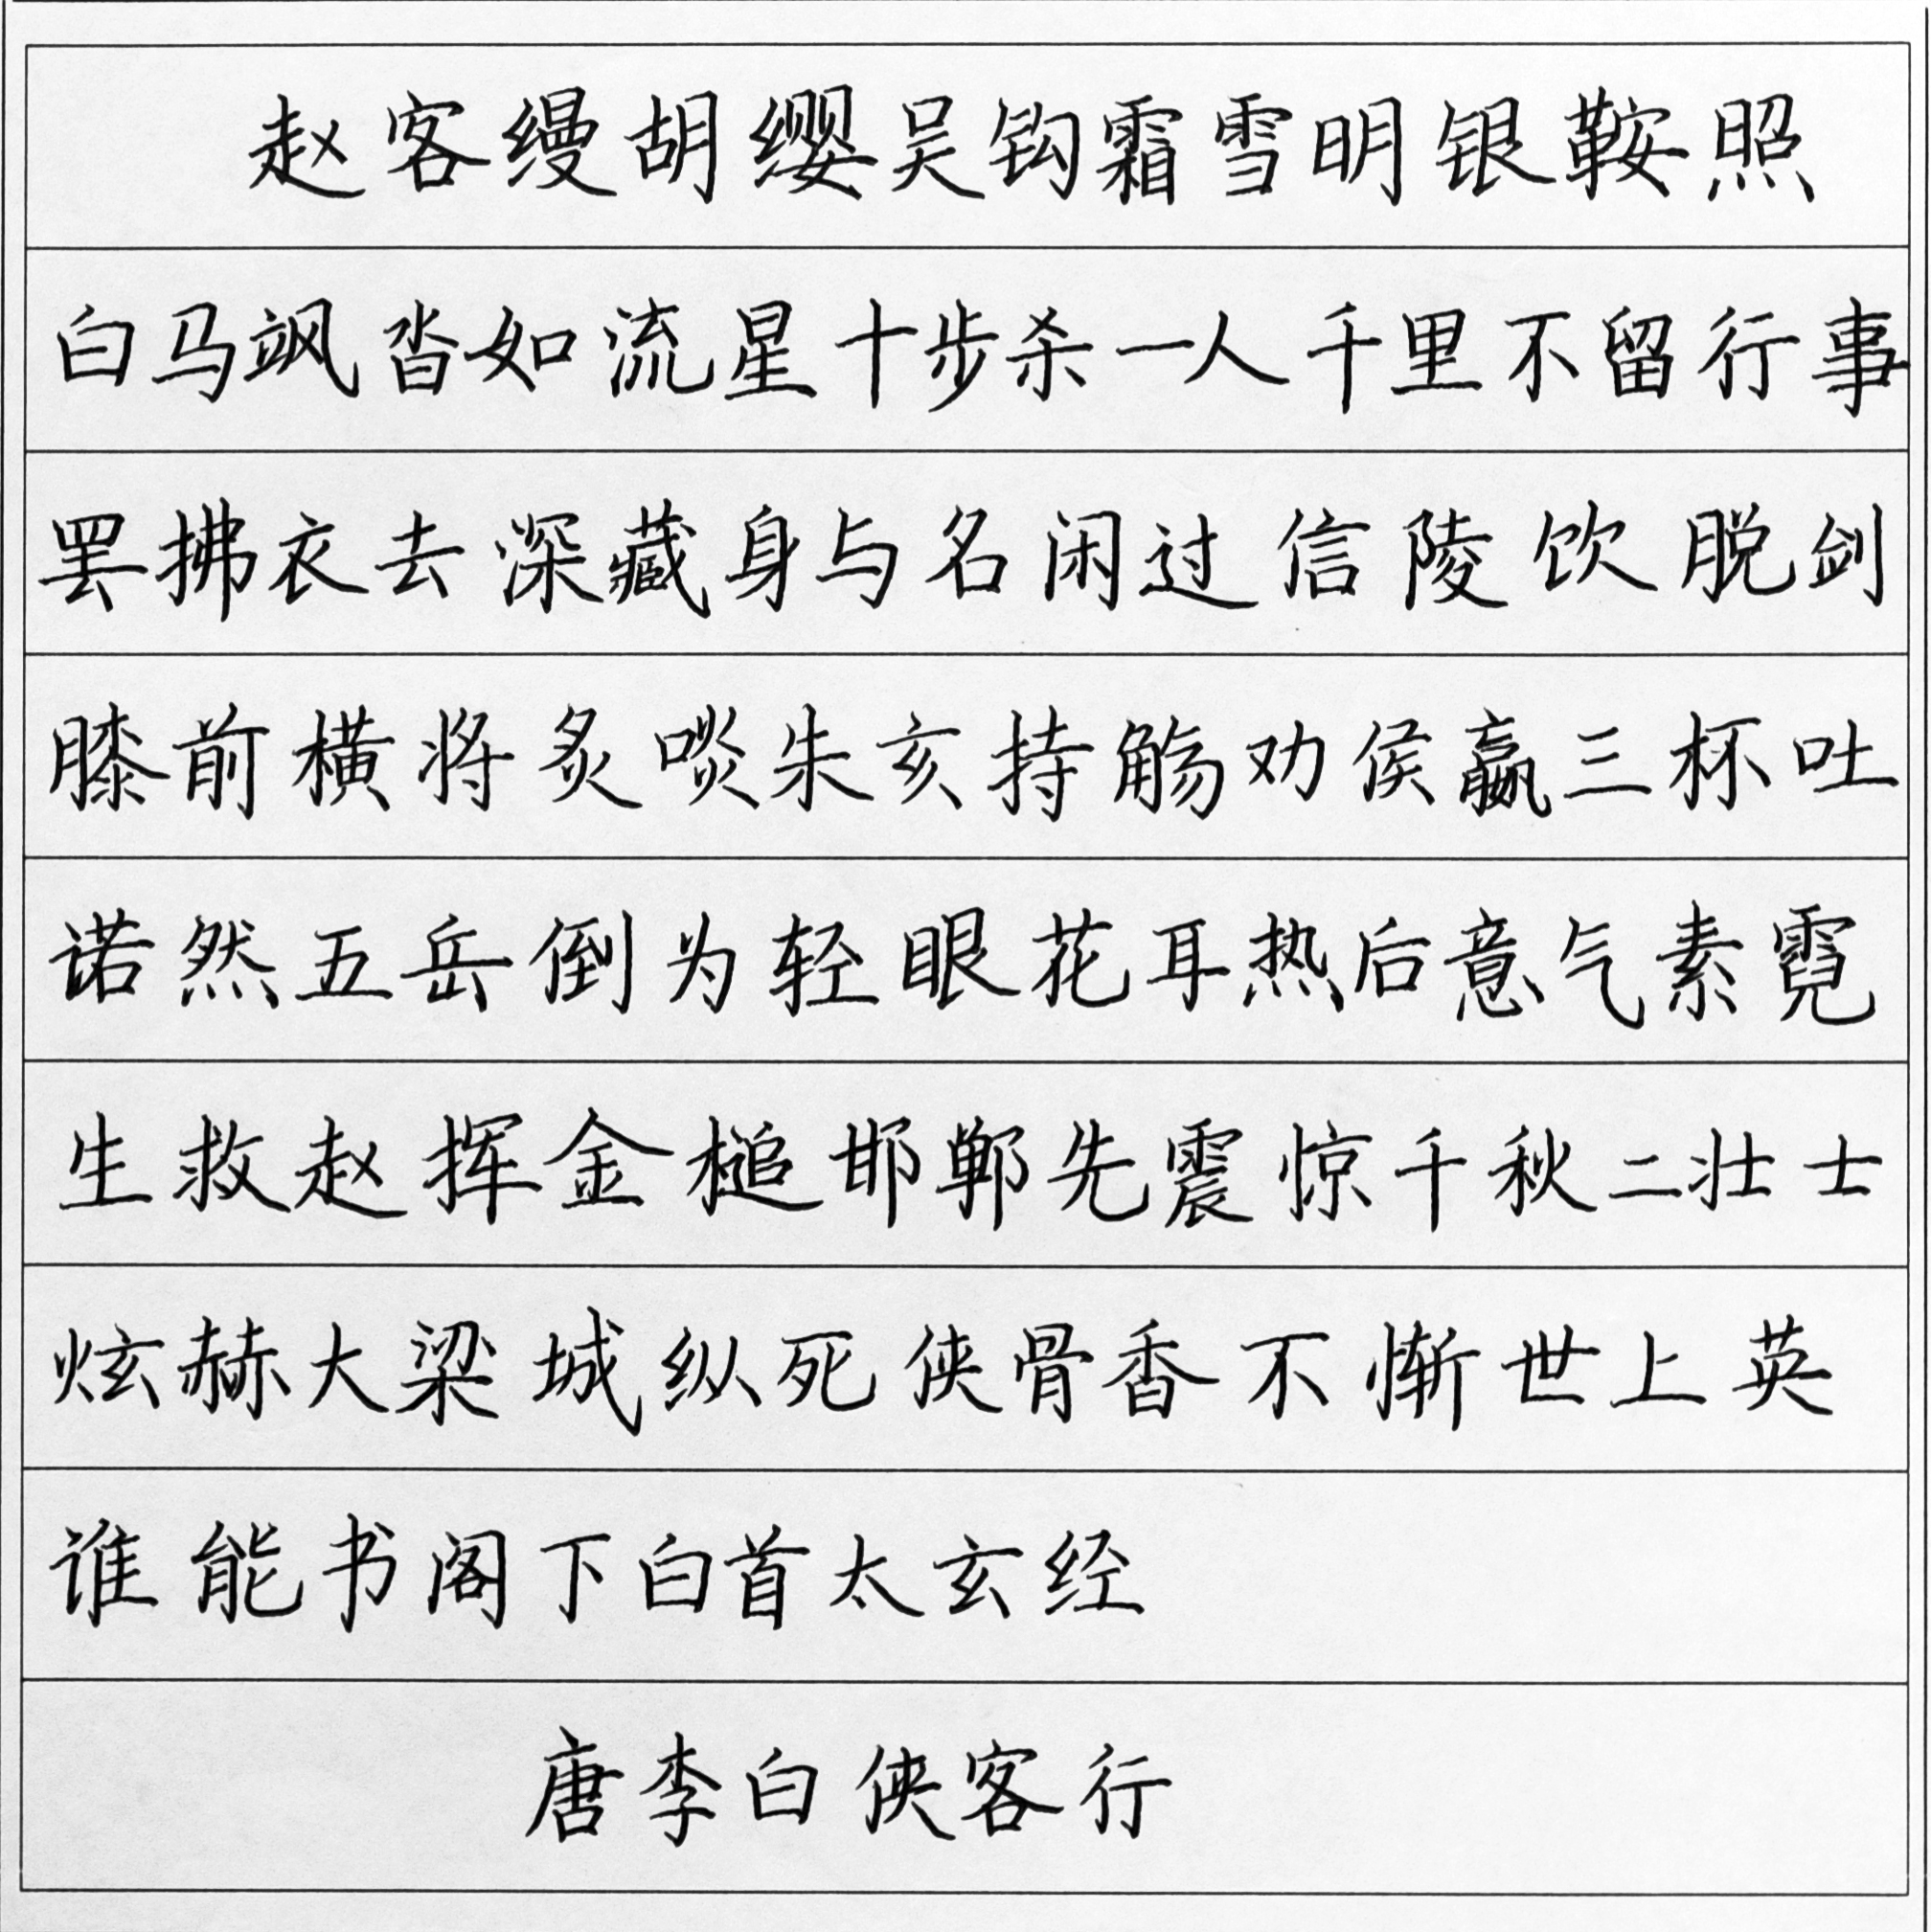 赵客缦胡缨吴钩霜雪明银鞍照
白马飒沓如流星十步杀一人千里不留行事
罢拂衣去深藏身与名闲过信陵饮脱剑
膝前横将炙啖朱亥持觞劝侯嬴三杯吐
诺然五岳倒为轻眼花耳热后意气素霓
生救赵挥金槌邯郸先震惊千秋二壮士
炫赫大梁城纵死侠骨香不惭世上英
谁能书阁下白首太玄经
唐李白侠客行